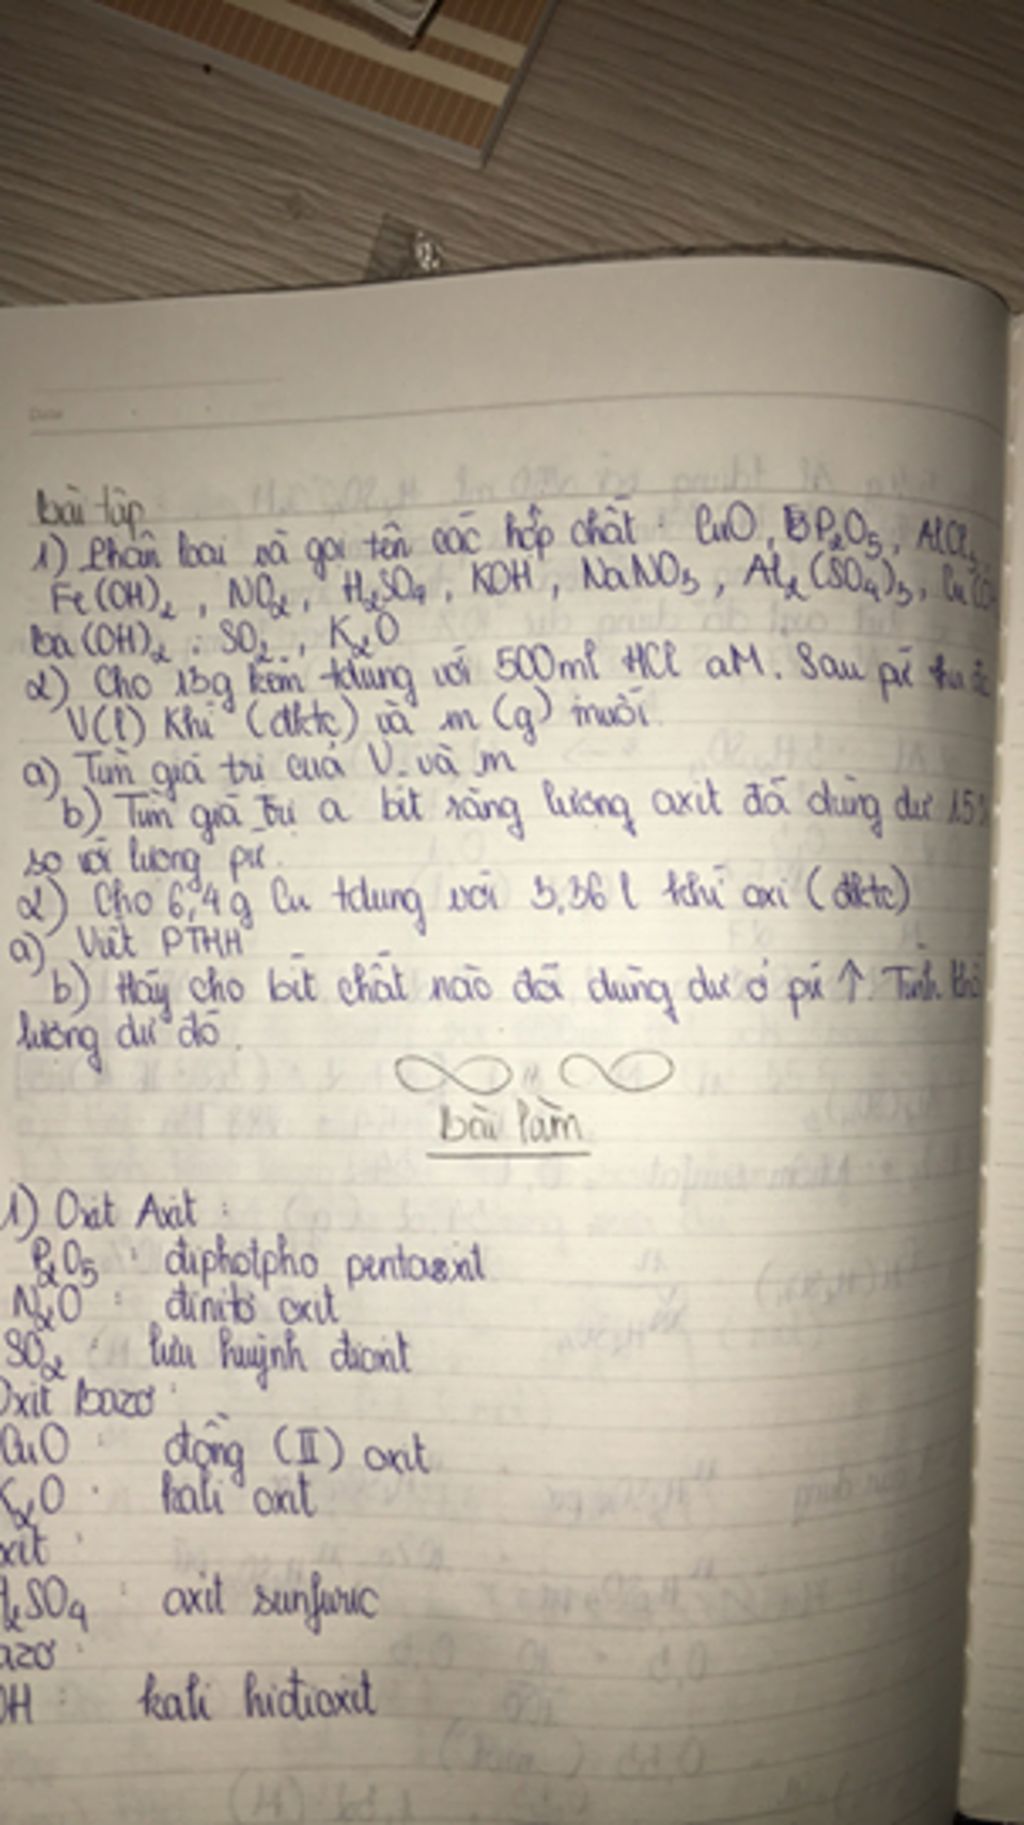 Date
Bài tập
1) Phân loại và gọi tên các hợp chất : CuO, P2O5, AlCl3
Fe(OH)2, NO2, H2SO4, KOH, NaNO3, Al2(SO4)3, Cu(O
Ba(OH)2, SO2, K2O
2) Cho 13g kẽm tdụng với 500ml HCl aM. Sau pứ thu đc
V(l) Khí (đktc) và m (g) muối.
a) Tìm giá trị của V và m
b) Tìm giá trị a bít rằng lượng axit đã dùng dư 15%
so với lượng pứ.
2) Cho 6,4g Cu tdụng với 3,36 l khí oxi (đktc)
a) Viết PTHH
b) Hãy cho bít chất nào đã dùng dư ở pứ ↑. Tính khố
lượng dư đó.
Bài làm
1) Oxit Axit :
P2O5 : điphotpho pentaoxit
N2O : đinitơ oxit
SO2 : lưu huỳnh đioxit
Oxit bazơ :
CuO : đồng (II) oxit
K2O : kali oxit
xit :
H2SO4 : axit sunfuric
azơ :
OH : kali hiđroxit